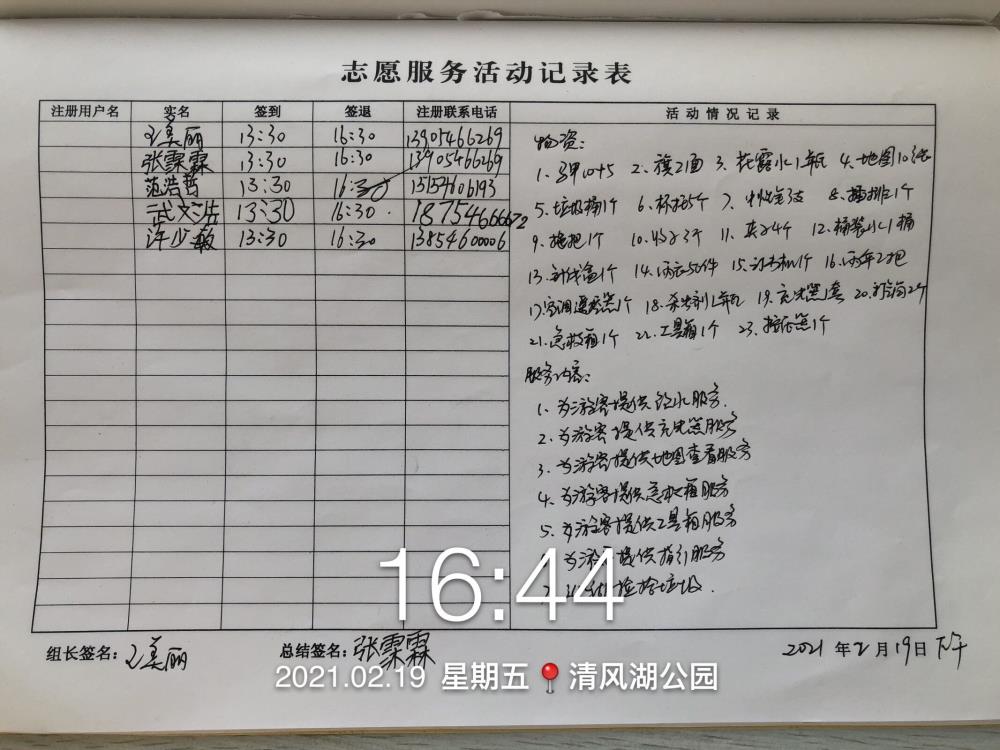 志愿服务活动记录表
注册用户名 实名 签到 签退 注册联系电话 活动情况记录
王美丽 13:30 16:30 13905466269
张霖霖 13:30 16:30 13905466269
范浩哲 13:30 16:30 15154606193
武文洁 13:30 16:30. 18754666672
许少敏 13:30 16:30 13854600006
物资:
1、马甲10+5 2、旗2面 3、花露水1瓶 4、地图10张
5、垃圾桶1个 6、杯托5个 7、中性笔3支 8、插排1个
9、拖把1个 10、 11、夹子4个 12、桶装水1桶
13、针线盒1个 14、雨衣50件 15、订书机1个 16、雨伞2把
17、空调遥控器1个 18、杀虫剂1瓶 19、充电器1套 20、
21、急救箱1个 22、工具箱1个 23、
服务内容:
1、为游客提供饮水服务.
2、为游客提供充电器服务
3、为游客提供地图查看服务
4、为游客提供急救箱服务
5、为游客提供工具箱服务
为游客提供指引服务
捡拾垃圾.
16:44
组长签名:王美丽 总结签名:张霖霖 2021年2月19日下午
2021.02.19 星期五 清风湖公园